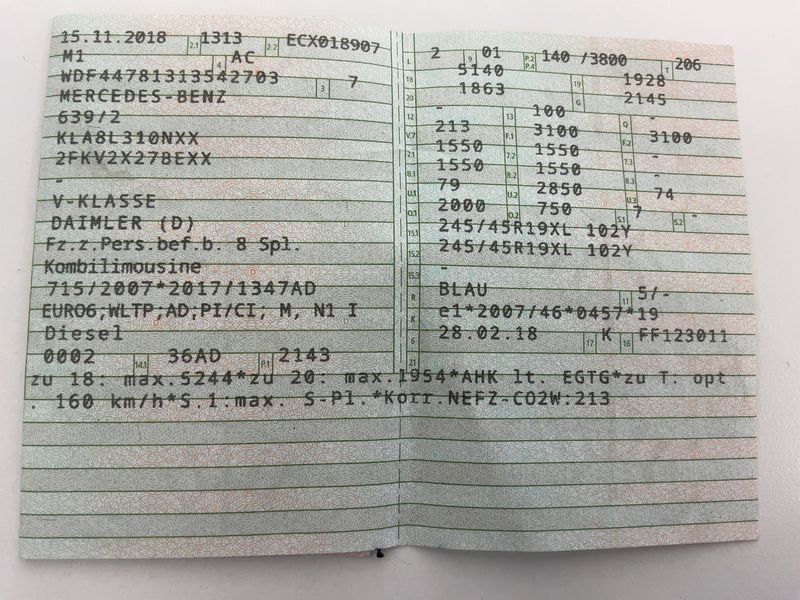 15.11.2018 2.1 1313 2.2 ECX018907
M1 4 AC
WDF44781313542703 3 7
MERCEDES-BENZ
639/2
KLA8L310NXX
2FKV2X278EXX
-
V-KLASSE
DAIMLER (D)
Fz.z.Pers.bef.b. 8 Spl.
Kombilimousine
715/2007*2017/1347AD
EURO6;WLTP;AD;PI/CI; M, N1 I
Diesel
0002 14.1 36AD P.1 2143
L 2 9 01 P.2 P.4 140 /3800 T 206
18 5140 19 1928
20 1863 G 2145
12 - 13 100 Q -
V.7 213 F.1 3100 F.2 3100
7.1 1550 7.2 1550 7.3 -
8.1 1550 8.2 1550 8.3 -
U.1 79 U.2 2850 U.3 74
O.1 2000 O.2 750 S.1 7 S.2 -
15.1 245/45R19XL 102Y
15.2 245/45R19XL 102Y
15.3 -
R BLAU 11 5/-
K e1*2007/46*0457*19
6 28.02.18 17 K 16 FF123011
21
zu 18: max.5244*zu 20: max.1954*AHK lt. EGTG*zu T. opt
. 160 km/h*S.1:max. S-Pl.*Korr.NEFZ-CO2W:213